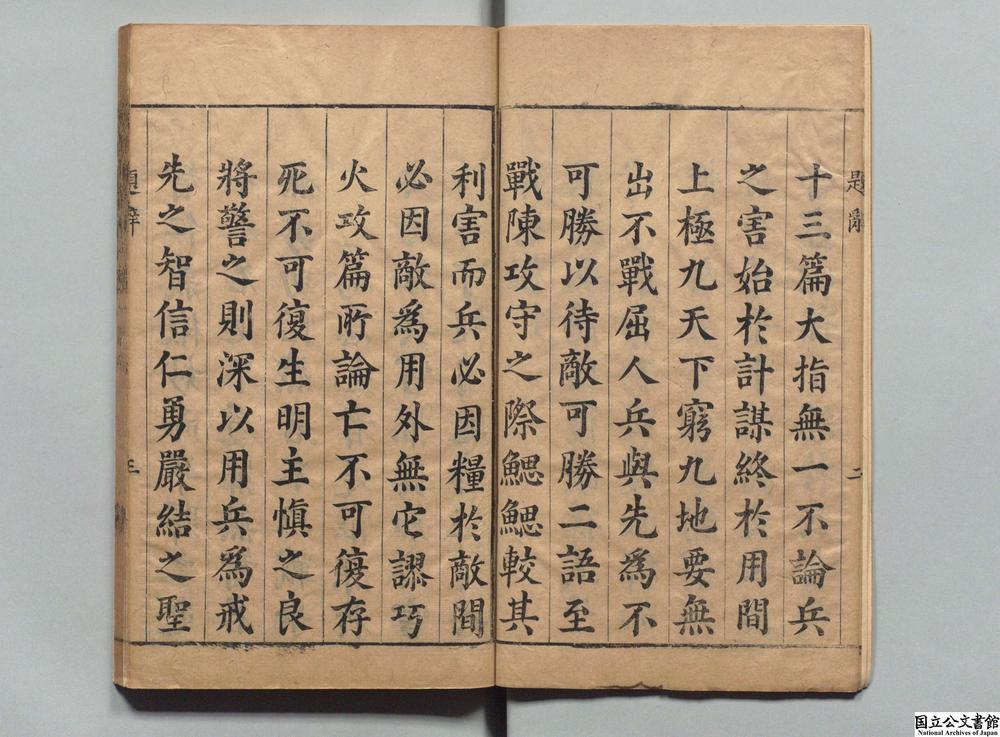 題辭
二
十三篇大指無一不論兵
之害始於計謀終於用間
上極九天下窮九地要無
出不戰屈人兵與先爲不
可勝以待敵可勝二語至
戰陳攻守之際鰓鰓較其
利害而兵必因糧於敵間
必因敵爲用外無它謬巧
火攻篇所論亡不可復存
死不可復生明主愼之良
將警之則深以用兵爲戒
先之智信仁勇嚴結之聖
題辭
三
国立公文書館
National Archives of Japan